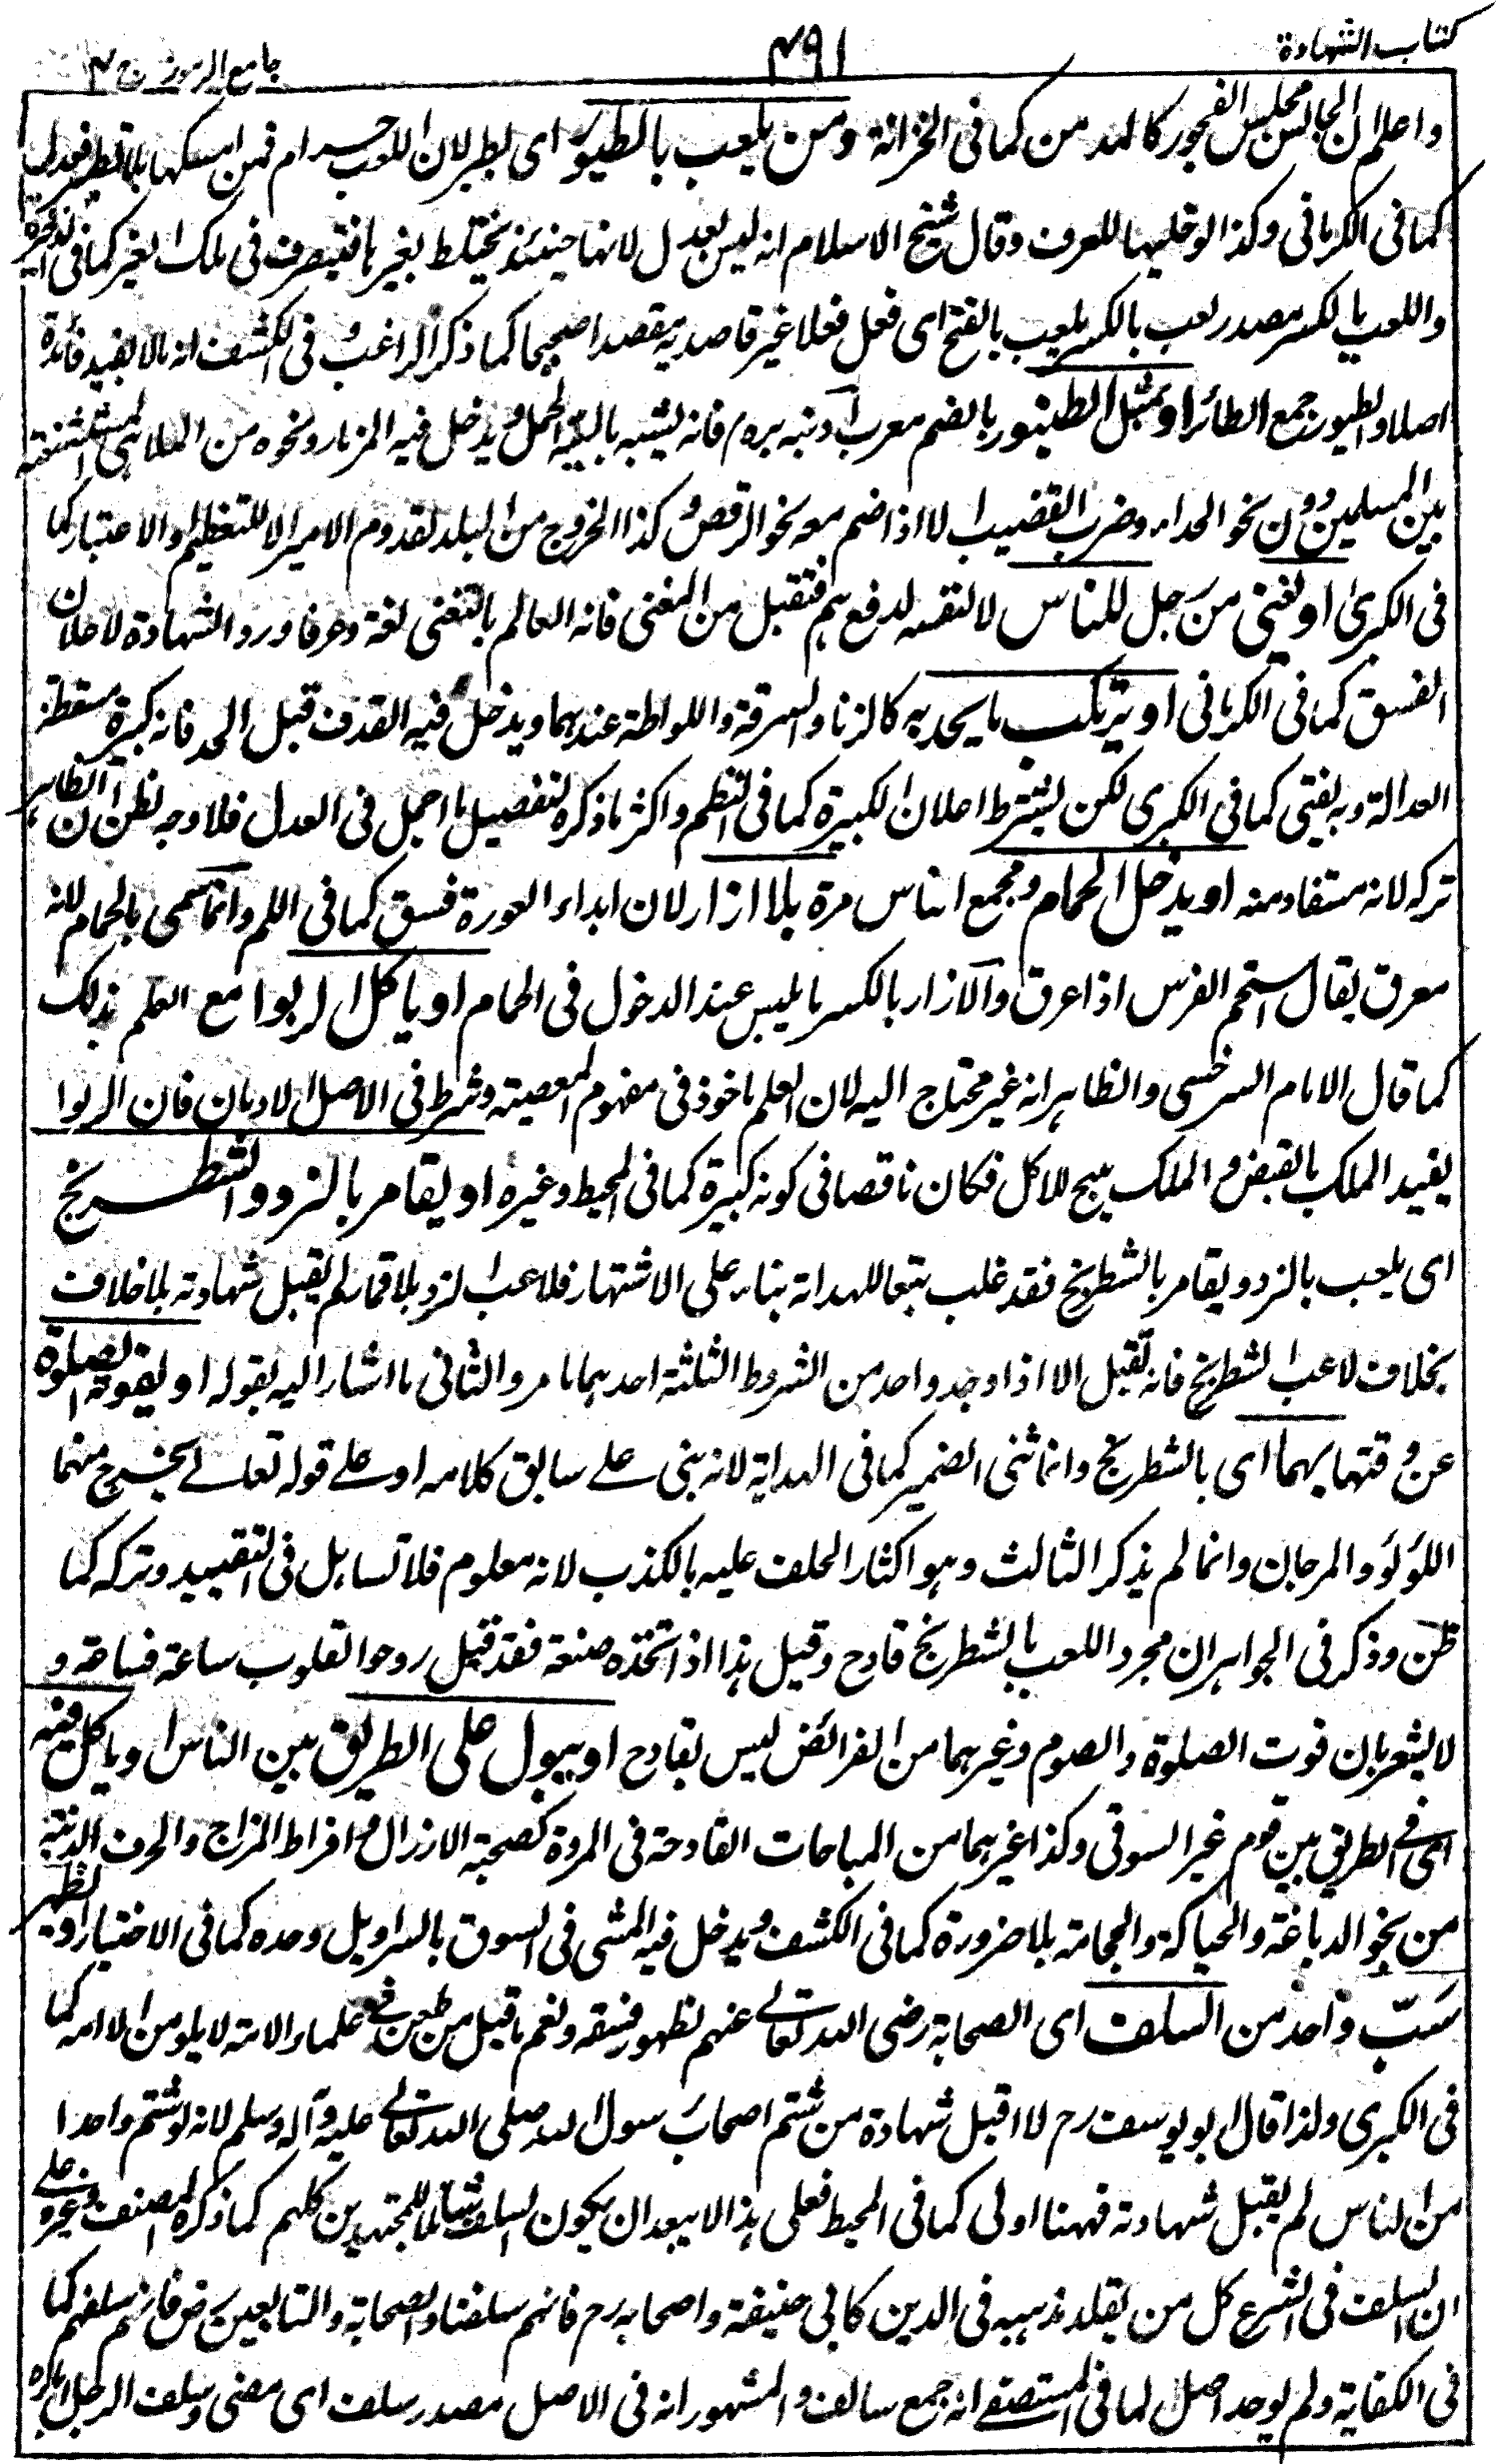 كتاب الشهادة
٤٩١
جامع الرموز ج ٣
واعلم ان الجالس مجلس الفجور كالمدمن كما فى الخزانة ومن يلعب بالطيور اى يطير لان اللعب حرام فمن امسكها بلا تطير فعدل
كما فى الكرمانى وكذا لو خليها للعرف وقال شيخ الاسلام انه ليس بعدل لانها حينئذ يختلط بغيرها فتتصرف فى ملك الغير كما فى الذخيرة
واللعب بالكسر مصدر لعب بالكسر يلعب بالفتح اى فعل فعلا غير قاصد به مقصدا صحيحا كما ذكر الراغب وفى الكشف انه مالا يفيد فائدة
اصلا والطيور جمع الطائر او مثل الطنبور بالضم معرب دنبه بره فانه يشبه بالية الحمل ويدخل فيه المزمار ونحوه من الملاهى المستشنعة
بين المسلمين دون نحو الحداء وضرب القضيب الا اذا ضم معه نحو الرقص وكذا الخروج من البلد لقدوم الامير الا للتعظيم والاعتبار كما
فى الكبرى او يغنى من رجل للناس لا لنفسه لدفع هم فتقبل من المغنى فانه العالم بالتغنى لغة وعرفا ورد الشهادة لاعلان
الفسق كما فى الكرمانى او يرتكب ما يحد به كالزنا والسرقة واللواطة عندهما ويدخل فيه القذف قبل الحد فانه كبيرة مسقطة
العدالة وبه يفتى كما فى الكبرى لكن يشترط اعلان الكبيرة كما فى النظم واكثر ما ذكره لتفصيل ما اجمل فى العدل فلا وجه لظن ان الظاهر
تركه لانه مستفاد منه او يدخل الحمام ومجمع الناس مرة بلا ازار لان ابداء العورة فسق كما فى اللم وانما سمى بالحمام لانه
معرق يقال استحم الفرس اذا عرق والازار بالكسر ما يلبس عند الدخول فى الحمام او ياكل الربوا مع العلم بذلك
كما قال الامام السرخسى والظاهر انه غير محتاج اليه لان العلم ماخوذ فى مفهوم المعصية وشرط فى الاصل الادمان فان الربوا
يفيد الملك بالقبض والملك يبيح للاكل فكان ناقصا فى كونه كبيرة كما فى المحيط وغيره او يقامر بالنرد والشطرنج
اى يلعب بالنرد ويقامر بالشطرنج فقد غلب تبعا للهداية بناء على الاشتهار فلاعب النرد بلا قمار لم يقبل شهادته بلا خلاف
بخلاف لاعب الشطرنج فانه تقبل الا اذا وجد واحد من الشروط الثلثة احدهما ما مر والثانى ما اشار اليه بقوله او يفوته الصلوة
عن وقتها بهما اى بالشطرنج وانما ثنى الضمير كما فى الهداية لانه بنى على سابق كلامه او على قوله تعالى يخرج منهما
اللؤلؤ والمرجان وانما لم يذكر الثالث وهو اكثار الحلف عليه بالكذب لانه معلوم فلا تساهل فى التقييد وتركه كما
ظن وذكر فى الجواهر ان مجرد اللعب بالشطرنج قادح وقيل هذا اذا اتخذه صنعة فقد قيل روحوا القلوب ساعة فساعة و
لا يشعر بان فوت الصلوة والصوم وغيرهما من الفرائض ليس بقادح او يبول على الطريق بين الناس او ياكل فيه
اى فى الطريق بين قوم غير السوقى وكذا غيرهما من المباحات القادحة فى المروة كصحبة الارذال وافراط المزاح والحرف الدنية
من نحو الدباغة والحياكة والحجامة بلا ضرورة كما فى الكشف ويدخل فيه المشى فى السوق بالسراويل وحده كما فى الاختيار او يظهر
سب واحد من السلف اى الصحابة رضى الله تعالى عنهم لظهور فسقه ونعم ما قيل من طعن فى علماء الامة لا يلومن الا امه كما
فى الكبرى ولذا قال ابو يوسف رح لا اقبل شهادة من شتم اصحاب رسول الله صلى الله تعالى عليه وآله وسلم لانه لو شتم واحدا
من الناس لم يقبل شهادته فههنا اولى كما فى المحيط فعلى هذا لا يبعد ان يكون السلف شاملا للمجتهدين كلهم كما ذكره المصنف وغيره على
ان السلف فى الشرع كل من يقلد مذهبه فى الدين كابى حنيفة واصحابه رح فانهم سلفنا والصحابة والتابعين رض فانهم سلفهم كما
فى الكفاية ولم يوجد اصل لما فى المستصفى انه جمع سالف والمشهور انه فى الاصل مصدر سلف اى مضى وسلف الرجل اباؤه